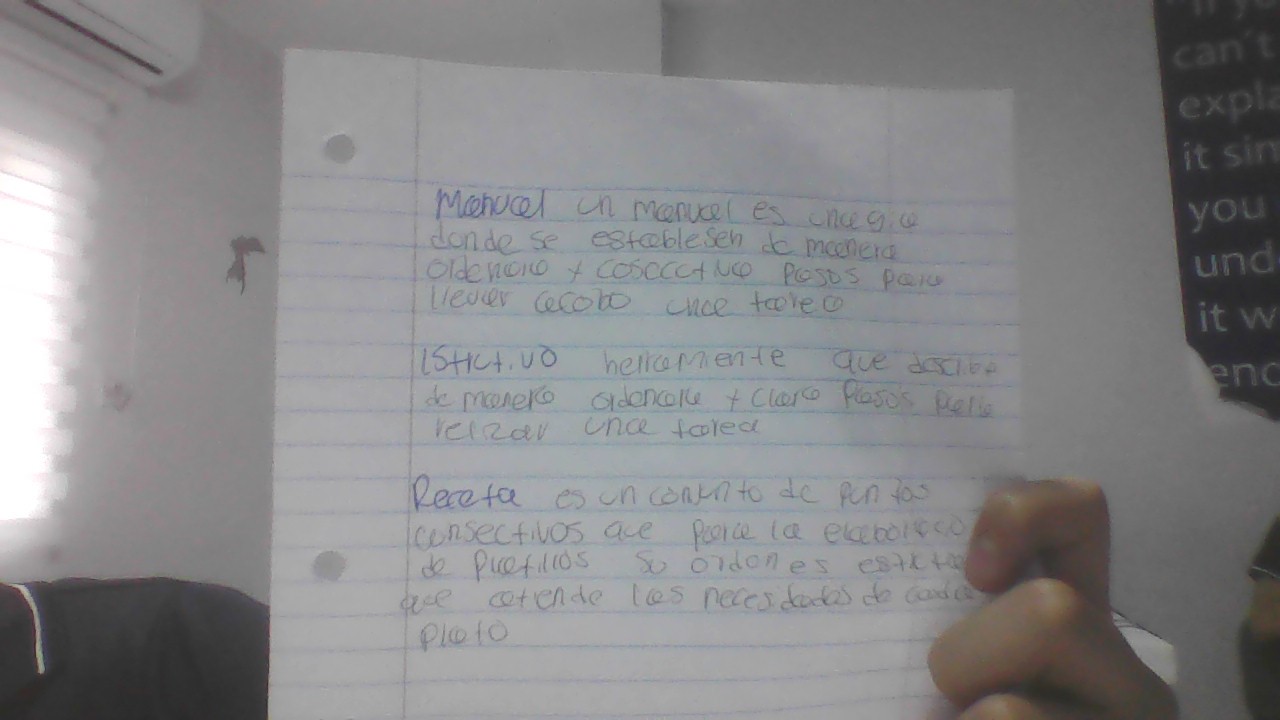 Manual un manual es una gia
donde se establesen de manera
ordenara y cosecctiva pasos para
llevar acabo una tarea
Istictivo herramiente que describe
de manera ordenara y clara pasos para
relizar una tarea
Receta es un conunto de puntos
consectivos que para la elaboracio
de platillos su orden es esticta
que atende las necesidades de cada
plato
"If you
can't
expla
it sim
you
unde
it w
enc